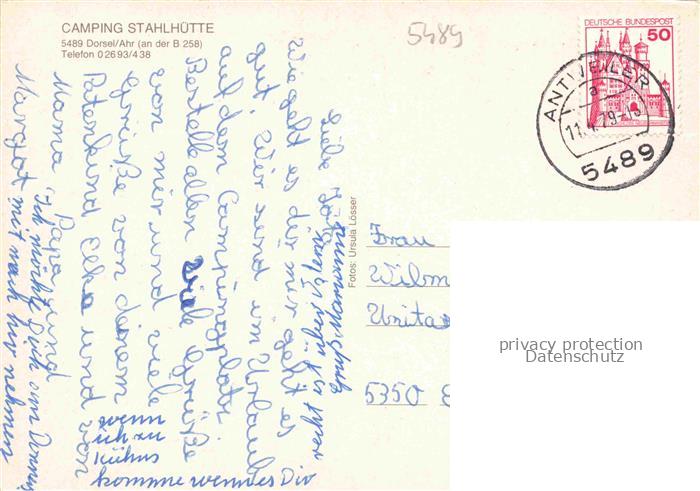 CAMPING STAHLHÜTTE
5489 Dorsel/Ahr (an der B 258)
Telefon 0 26 93/4 38
5489
DEUTSCHE BUNDESPOST
50
ANTWEILER
a
11.4.79-15
5489
Liebe
Wie geht es dir mir geht es
gut. Wir sind im Urlaub
auf dem Campingplatz.
Bestelle allen viele Grüße
von mir und viele
Grüße von deinem
Patenkind Elke und von
Mama Papa und
Margot
ich möchte Dich am
mit nach hr nehmen
wenn
ich zu
Kühns
komme wenn es Dir
recht ist über
Gruß Marianne
Fotos: Ursula Lösser
Frau
Wilm
Unita
5350
privacy protection
Datenschutz